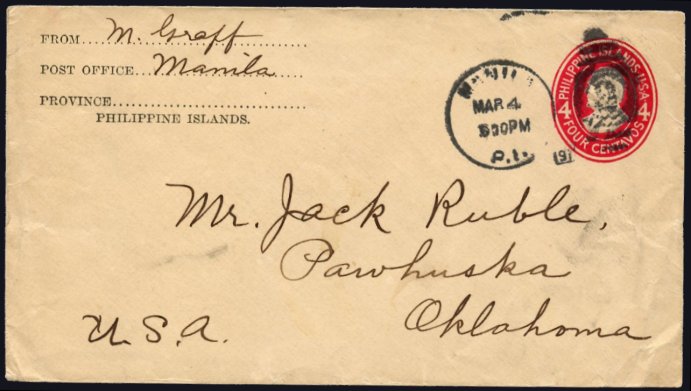 FROM M. Graff
POST OFFICE Manila
PROVINCE
PHILIPPINE ISLANDS.
MANILA
MAR 4
PM
P.I.
PHILIPPINE ISLANDS U.S.A.
4 4
FOUR CENTAVOS
Mr. Jack Ruble,
Pawhuska
Oklahoma
U.S.A.